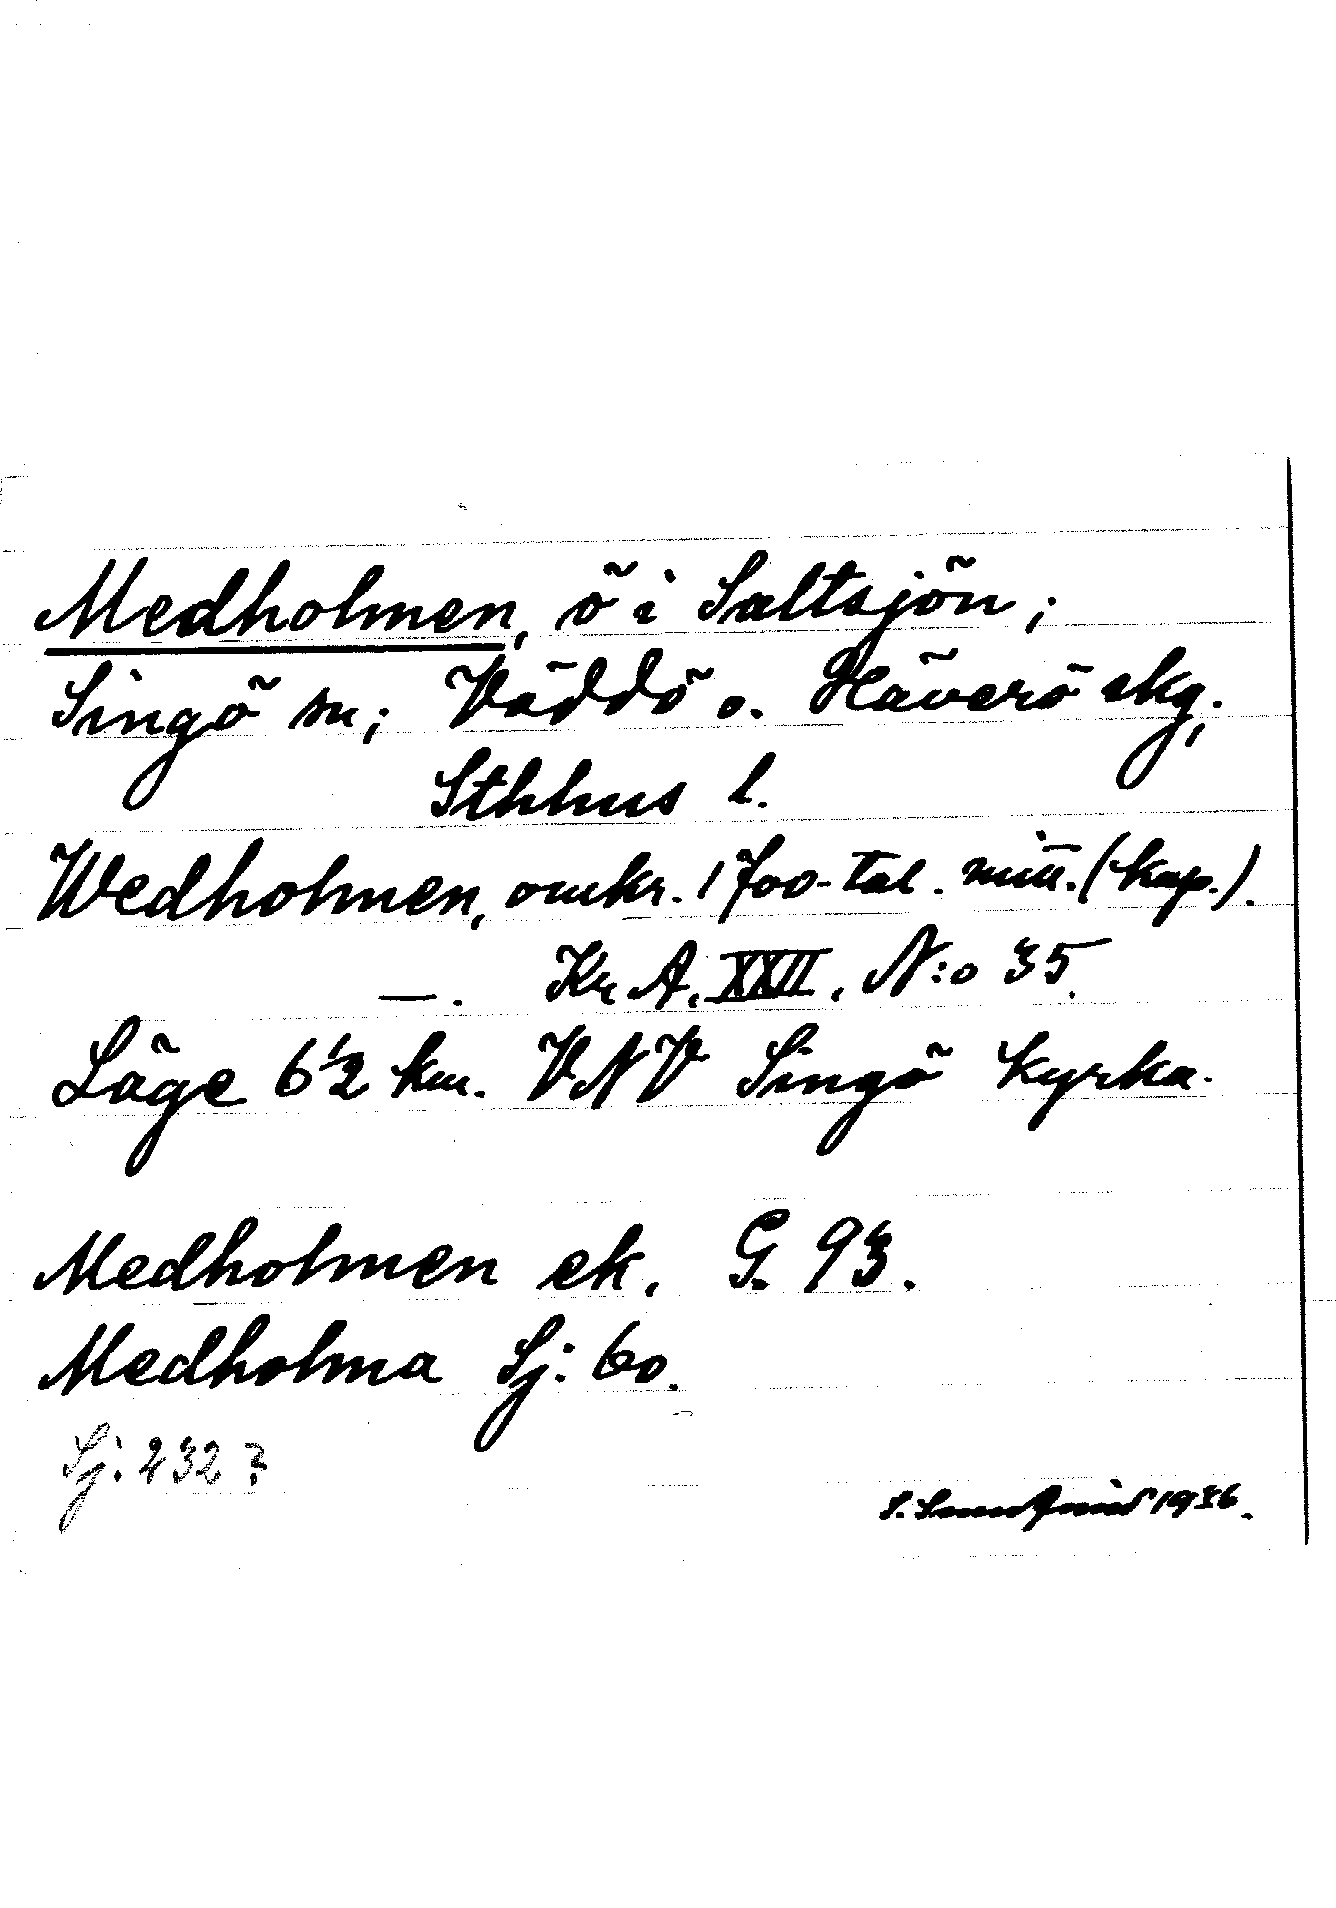 Medholmen, ö i Saltsjön;
Singö sn; Väddö o. Häverö skg;
Sthlms l.
Wedholmen, omkr. 1700-tal. mitt. (kap.).
—. Kr. A. XXII, N:o 35.
Läge 6 1/2 km. VNV Singö kyrka.
Medholmen ek. G. 93.
Medholma Sj: 60.
Sj: 232?
S. 1936.